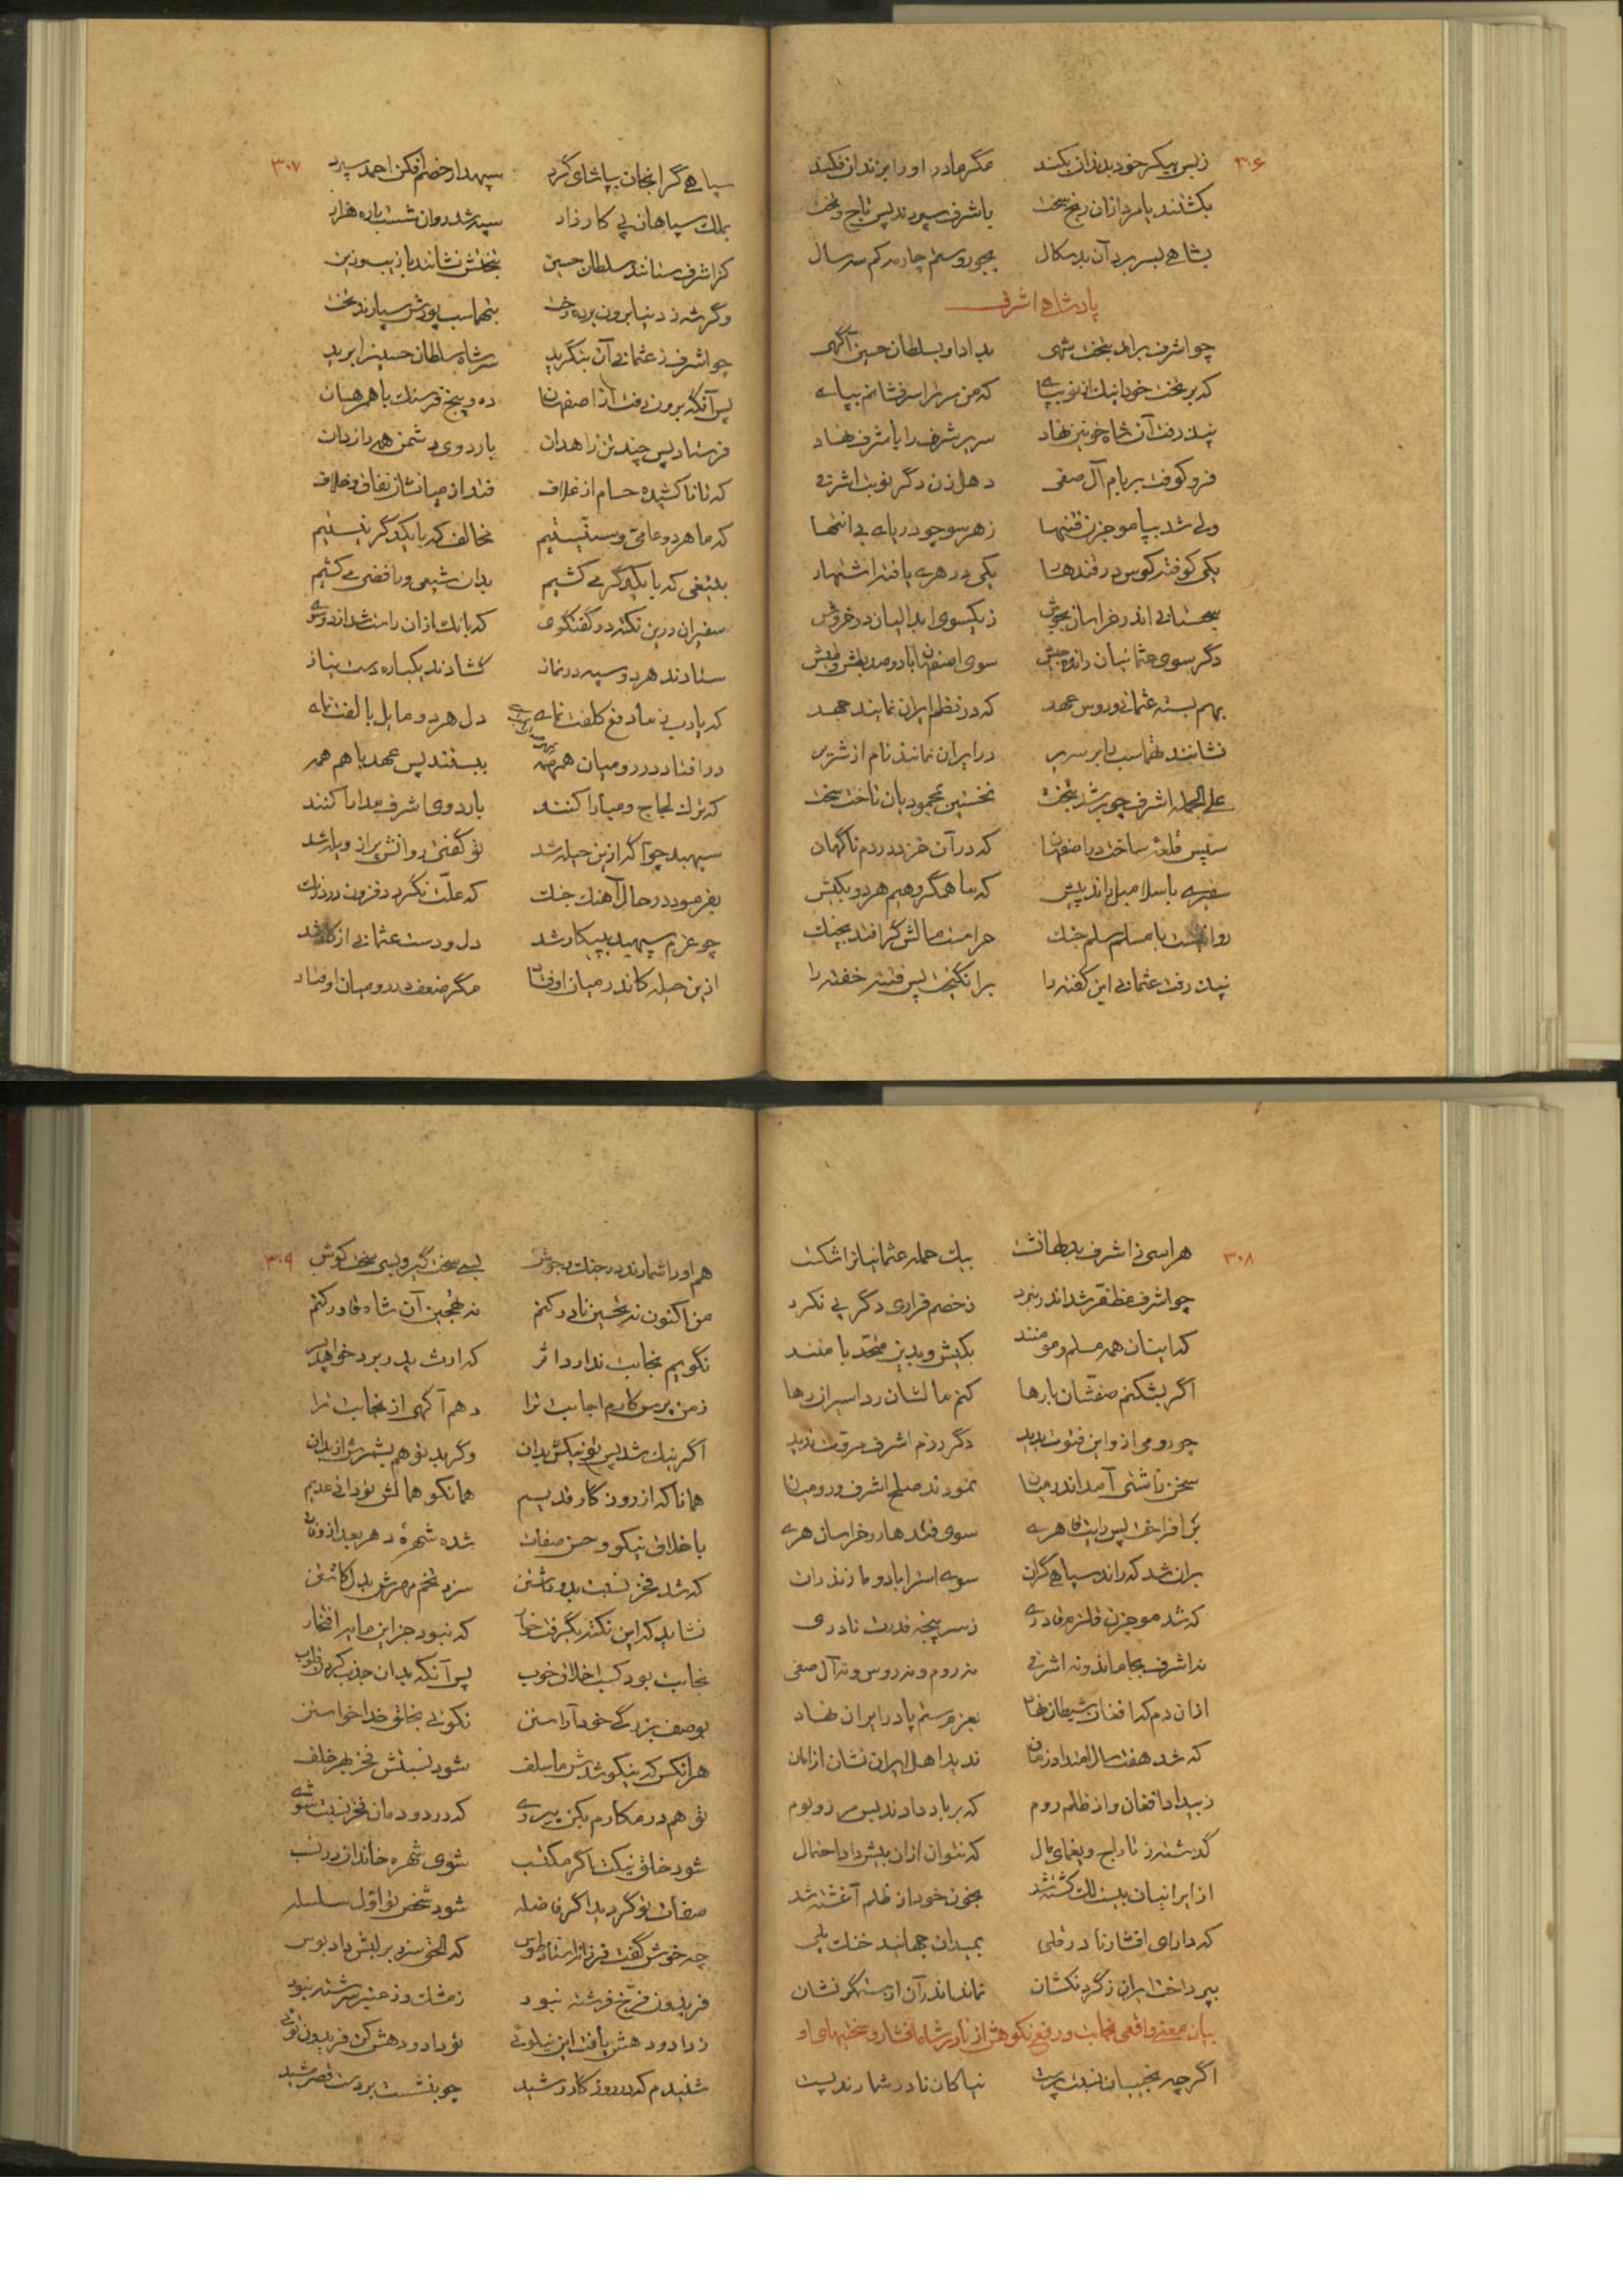 ۳۰۶
ز بس پیکر خود بدندان بکند مگر مادر او را بزندان فکند
بکشتند یا مرد از آن رنج سخت باشرف سپردند پس تاج و تخت
بشاهی بسر برد آن بدسکال بجور و ستم چار مه کم سه سال
پادشاهی اشرف
چو اشرف برآمد بتخت شهی بداد او بسلطان حسین آگهی
که بر تخت خود اینک از نو بپای که من سر ترا سرفشانم بپای
نپذرفت آن شاه خونین نهاد سریر شرف را باشرف نهاد
فرو کوفت بر بام آل صفی دهل زن دگر نوبت اشرفی
ولی شد بپا موج زن فتنها ز هر سو چو دریای بی انتها
یکی کوفته کوس در قندهار یکی در هری یافته اشتهار
سجستانی اندر خراسان بجوش ز یکسوی ابدالیان در خروش
دگر سوی عثمانیان رانده جیش سوی اصفهان با دو صد بطش و طیش
بهم بسته عثمانی و روس عهد که در نظم ایران نمایند جهد
نشانند طهماسب را بر سریر در ایران نماند نام از شریر
علی الجمله اشرف چو بر شد بتخت نخستین بمحمودیان تاخت سخت
سپس قلعهٔ ساخت در اصفهان که در آن خزد در دم ناگهان
سفیری باسلامبول راند پیش که ما همگروهیم هر دو بکیش
روا نیست با مسلم سلم جنگ حرامست مالش گر افتد بچنگ
نپذرفت عثمانی این گفته را برانگیخت پس فتنه خفته را
۳۰۷
سپاهی گران جان بپاشای گرد سپهدار خصم افکن احمد سپرد
بملک سپاهان پی کارزار سپه شد روان شصت باره هزار
کز اشرف ستانند سلطان حسین بتختش نشانند با زیب و زین
وگر شه ز دنیا برون برده رخت بطهماسب پورش سپارند تخت
چو اشرف ز عثمانی آن بنگرید سر شاه سلطان حسین را برید
پس آنگه برون رفت از اصفهان ده و پنج فرسنگ با همرهان
فرستاد پس چند تن زاهدان باردوی دشمن همه رازدان
که تا نا کشیده حسام از غلاف فتد از میانشان نفاق و خلاف
که ما هر دو عامی و سنیستیم مخالف که با یکدگر نیستیم
بتیغی که با یکدگر می کشیم بدان شیعی و رافضی می کشیم
سفیران درین نکته در گفتگوی که بانگ اذان راست شد از دو سوی
ستادند هر دو سپه در نماز گشادند یکباره دست نیاز
که یارب ز ما دفع کلفت نمای دل هر دو مایل بالفت نمای
در افتاد در رومیان همهمه ببستند پس عهد با هم همه
که ترک لجاج و مبارا کنند باردوی اشرف مدارا کنند
سپهبد چو آگه ازین حیله شد تو گفتی روانش پر از ویله شد
بفرمود در حال آهنگ جنگ که علت نگردد فزون در درنگ
چو عزم سپهبد به پیکار شد دل و دست عثمانی از کار شد
ازین حیله کاندر میان اوفتاد مگر ضعف در رومیان اوفتاد
۳۰۸
هراسی ز اشرف بدلها نشست بیک حمله عثمانیان را شکست
چو اشرف مظفر شد اندر نبرد ز خصم فراری دگر پی نکرد
که اینان همه مسلم و مومنند بکیش و بدین متحد با منند
اگر بشکنم صفشان بارها کنم مالشان رد اسیران رها
چو رومی ازو این فتوت بدید دگر رزم اشرف مروت ندید
سخن ز آشتی آمد اندر میان نمودند صلح اشرف و رومیان
بر افراخت پس رایت قاهری سوی قندهار و خراسان هری
بران شد که راند سپاهی گران سوی استراباد و مازندران
که شد موج زن قلزم قادری ز سر پنجه قدرت نادری
نه اشرف بجا ماند و نه اشرفی نه روم و نه روس و نه آل صفی
از آن دم که افغان شیطان نهاد بعزم ستم پا در ایران نهاد
که شد هفت سال امتداد زمان ندید اهل ایران نشان از امان
ز بیداد افغان و از ظلم روم که بر باد دادند پس مرز و بوم
گذشته ز تاراج و یغمای مال که نتوان از آن بیش داد احتمال
از ایرانیان بیست لک کشته شد بخون خود از ظلم آغشته شد
که دارای افشار نادر قلی بمیدان جهانید خنگ یلی
بپرداخت ایران ز گردنکشان نماند اندر آن از ستمگر نشان
بیان معنی واقعی نجابت و رفع نکوهش از نادر شاه افشار و سختیهای او
اگر چه نجیبان نسبت پرست نیاکان نادر شمارند پست
۳۰۹
هم او را شمارند در جنگ و جوش بسی سخت گیر و بسی سخت کوش
من اکنون نه تحسین نادر کنم نه تهجین آن شاه قادر کنم
نگویم نجابت ندارد اثر که ارث پدر برد خواهد پسر
ز من پرس کارم اجابت ترا دهم آگهی از نجابت ترا
اگر نیک شد پس تو نیکش بدان وگر بد تو هم بشمرش از بدان
همانا که از روزگار قدیم همانکو همالش تو دانی عدیم
باخلاق نیکو و حسن صفات شده شهرهٔ دهر بعد از وفات
که شد فخر نسبت بدو داشتن سزد تخم مهرش بدل کاشتن
نشاید که این نکته بگرفت خوار که نبود جز این مایه افتخار
نجابت بود کسب اخلاق خوب پس آنگه بدان جذب کردن قلوب
بوصف بزرگی خود آراستن نکوئی بخلق خدا خواستن
هر آنکس که نیکو شدش ما سلف شود نسبتش فخر بهر خلف
تو هم در مکارم بکن پیروی که در دودمان فخر نسبت شوی
شود خلق نیکت اگر مکتسب شوی شهره خاندان در نسب
صفات تو گردید اگر فاضله شود شخص تو اول سلسله
چه خوش گفت فرزانه استاد طوس که الحق سزد بر لبش داد بوس
فریدون فرخ فرشته نبود ز مشک و ز عنبر سرشته نبود
ز داد و دهش یافت این نیکوئی تو داد و دهش کن فریدون توئی
شنیدم که در روزگار رشید چو بنشست بر دست قصر مشید